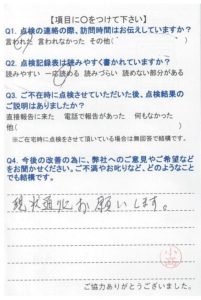 【項目に〇をつけて下さい】
Q1. 点検の連絡の際、訪問時間はお伝えしていますか?
言われた 言われなかった その他( )
Q2. 点検記録表は読みやすく書かれていますか?
読みやすい 一応読める 読みづらい 読めない部分がある
Q3. ご不在時に点検させていただいた後、点検結果の
ご説明はありましたか?
直接報告に来た 電話で報告があった 何もなかった
他( )
※ご在宅時に点検をさせて頂いている場合は無回答で結構です。
Q4. 今後の改善の為に、弊社へのご意見やご希望など
をお聞かせください。ご不満やお叱りなど、どのようなこと
でも結構です。
現状通りお願いします。
ご協力ありがとうございました。